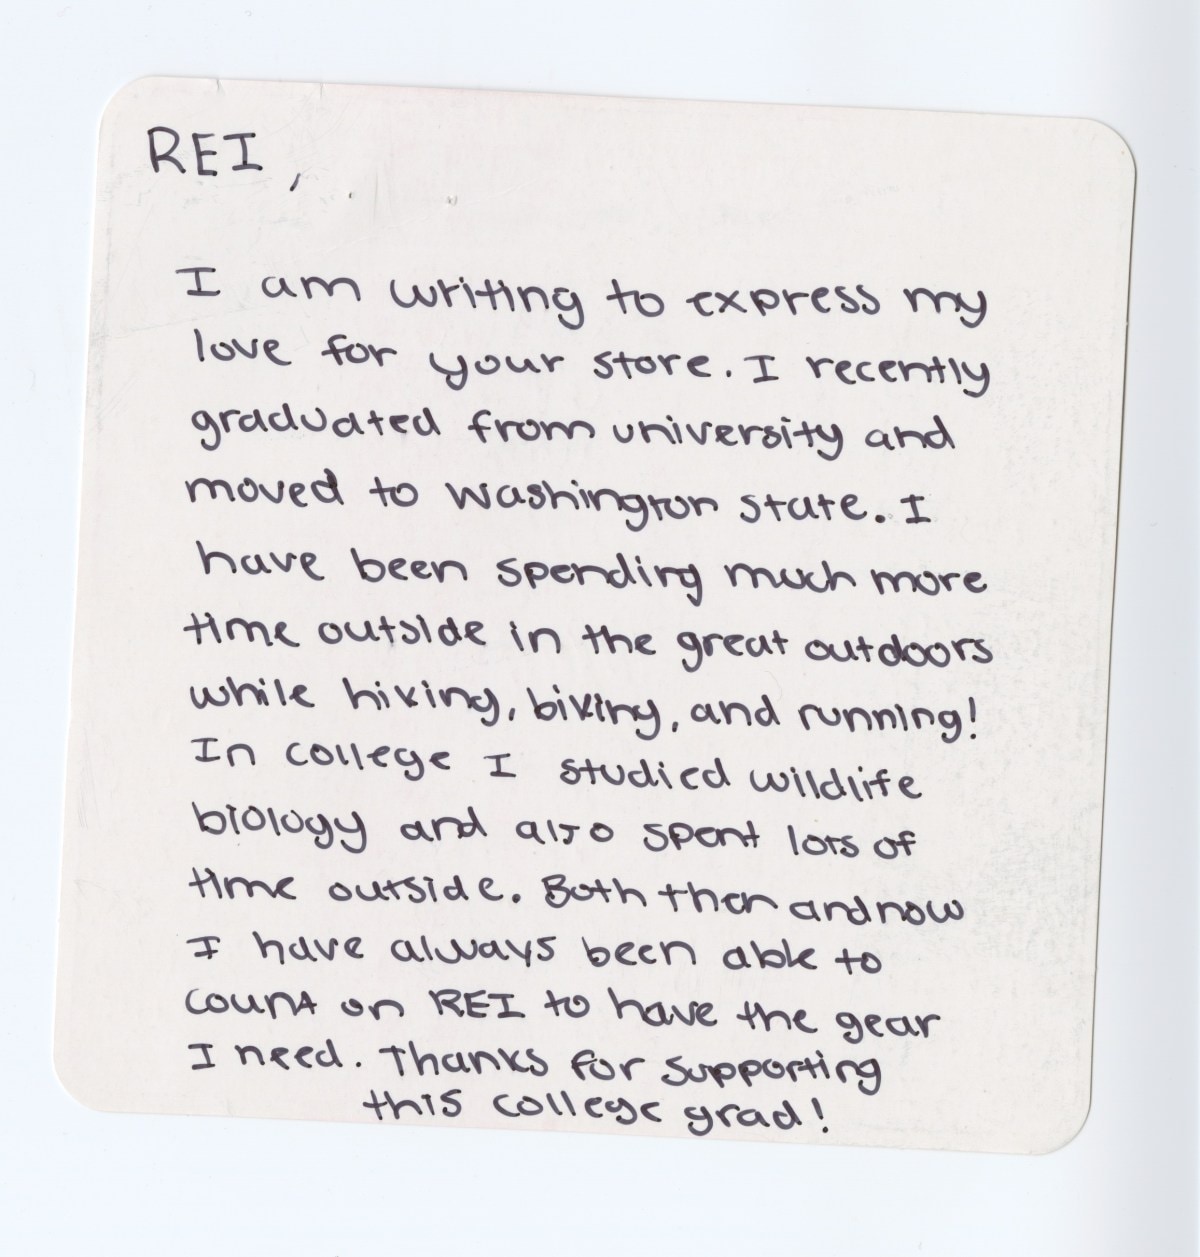 REI,
I am writing to express my
love for your store. I recently
graduated from university and
moved to Washington state. I
have been spending much more
time outside in the great outdoors
while hiking, biking, and running!
In college I studied wildlife
biology and also spent lots of
time outside. Both then and now
I have always been able to
count on REI to have the gear
I need. Thanks for supporting
this college grad!